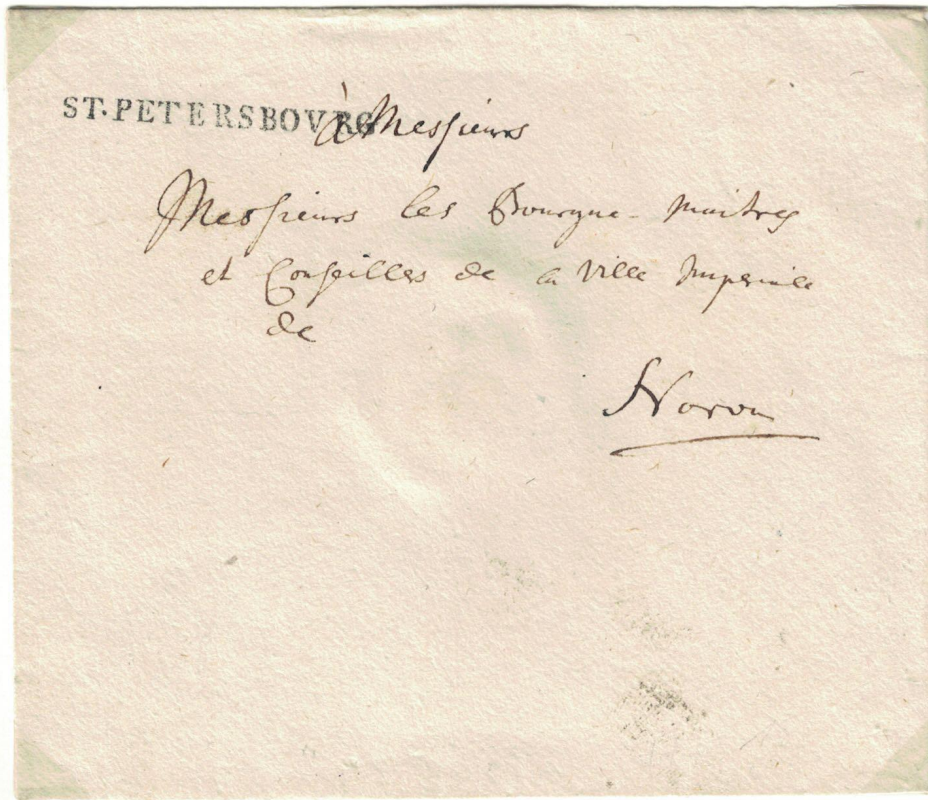 ST. PETERSBOVRG
à Messieurs
Messieurs les Bourgue-maitres
et Conseilles de la Ville Imperiale
de
Narva